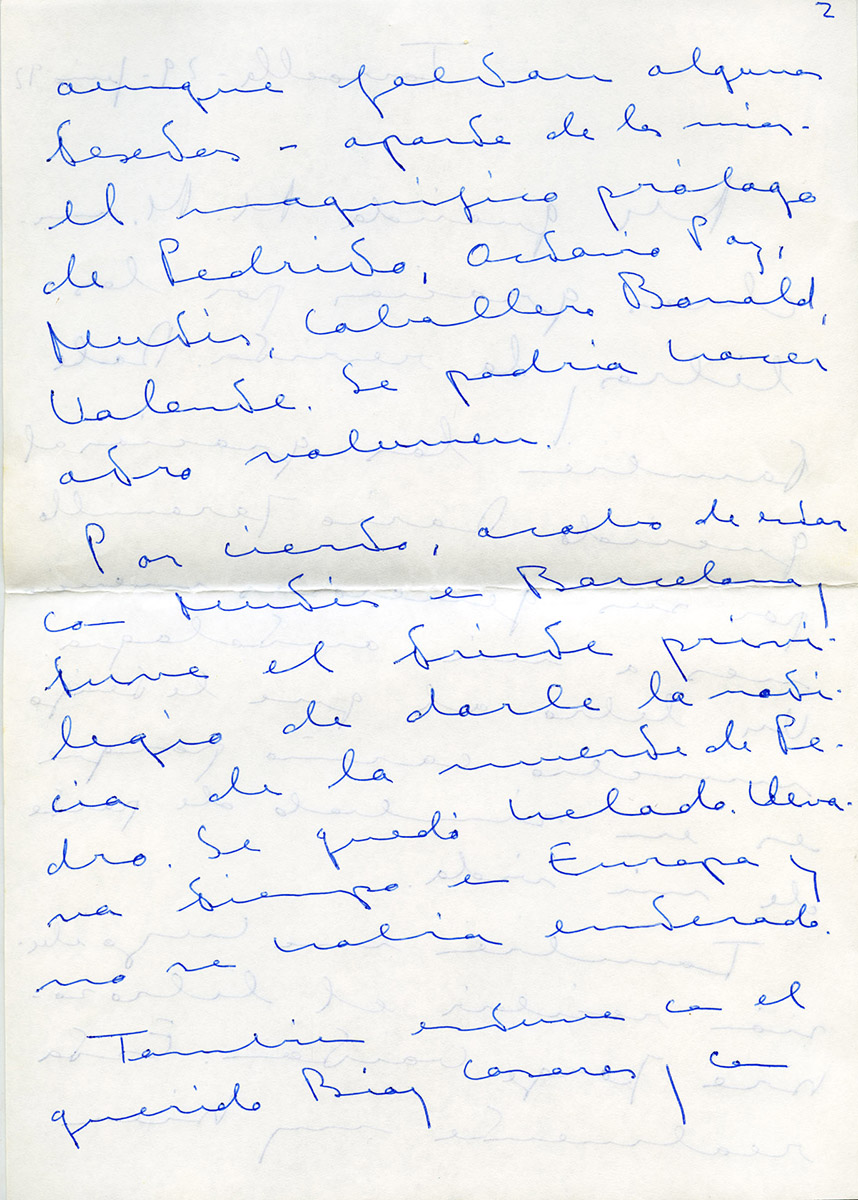 2
aunque faltan algunos
textos - aparte de los míos -
el magnífico prólogo
de Pedrito, Octavio Paz,
Mutis, Caballero Bonald,
Valente. Se podría hacer
otro volumen.
Por cierto, acabo de estar
con Mutis en Barcelona y
tuve el triste privi-
legio de darle la noti-
cia de la muerte de Pe-
dro. Se quedó helado. Lleva-
va tiempo en Europa y
no se había enterado.
También estuve con el
querido Bioy Casares y con